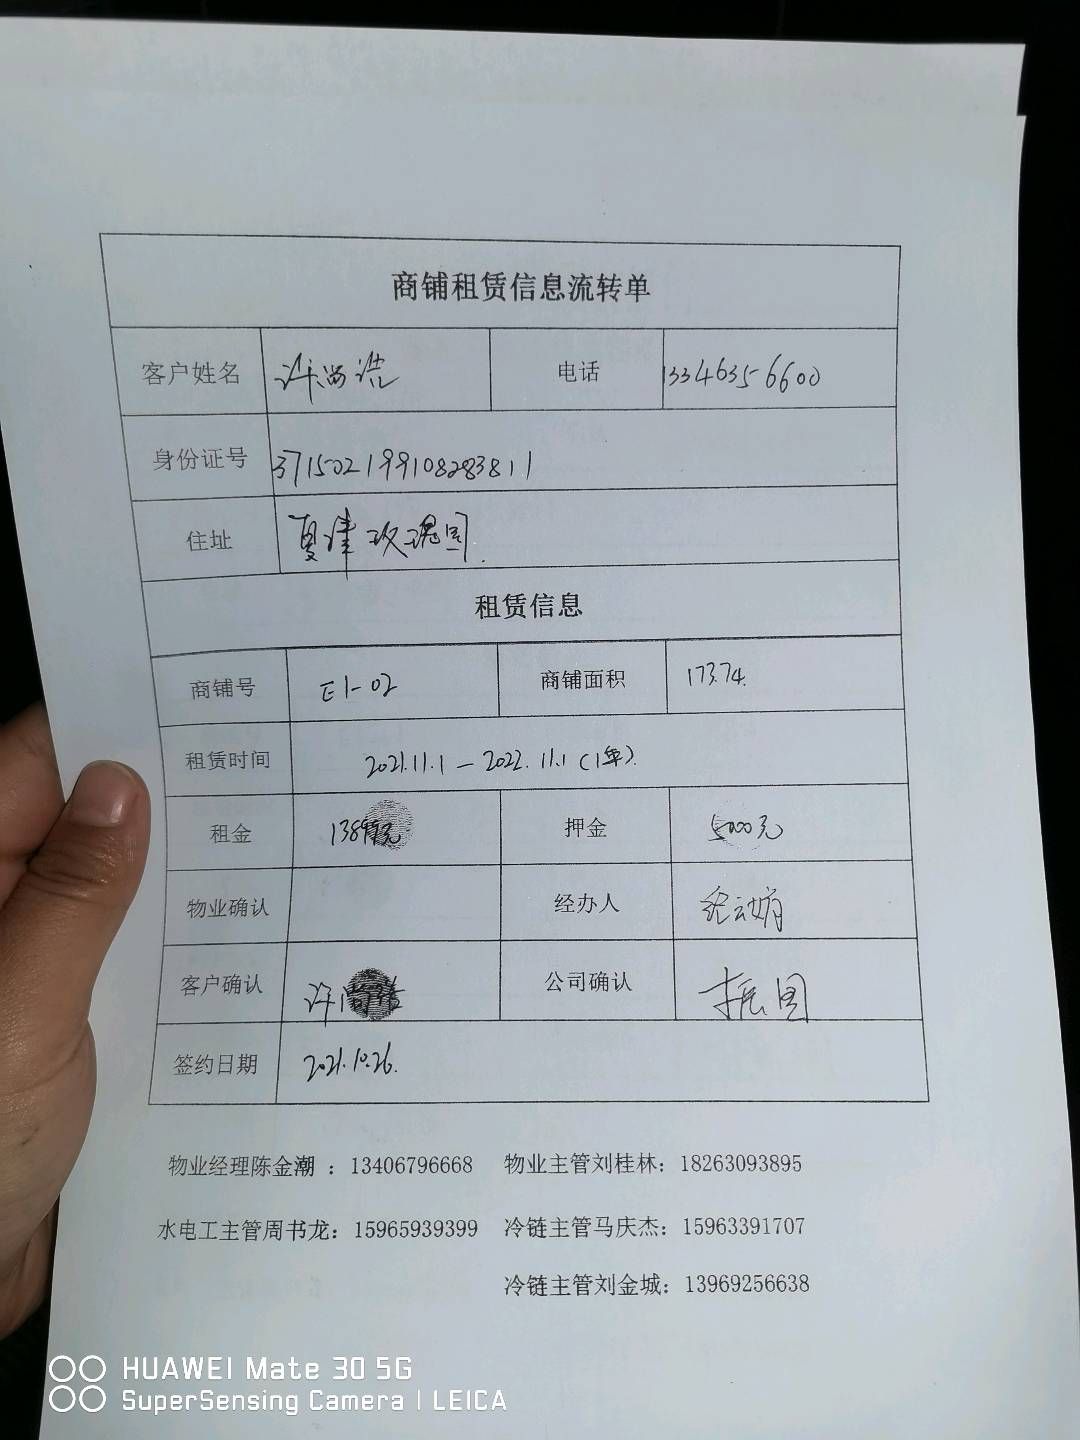 商铺租赁信息流转单
客户姓名 许尚浩 电话 13346356600
身份证号 371502199108283811
住址 夏津玫瑰园.
租赁信息
商铺号 E1-02 商铺面积 173.74.
租赁时间 2021.11.1 — 2022.11.1 (1年).
租金 13899元 押金 5000元
物业确认 经办人
客户确认 许尚浩 公司确认
签约日期 2021.10.26.
物业经理陈金潮 ：13406796668 物业主管刘桂林：18263093895
水电工主管周书龙：15965939399 冷链主管马庆杰：15963391707
冷链主管刘金城：13969256638
HUAWEI Mate 30 5G
SuperSensing Camera | LEICA